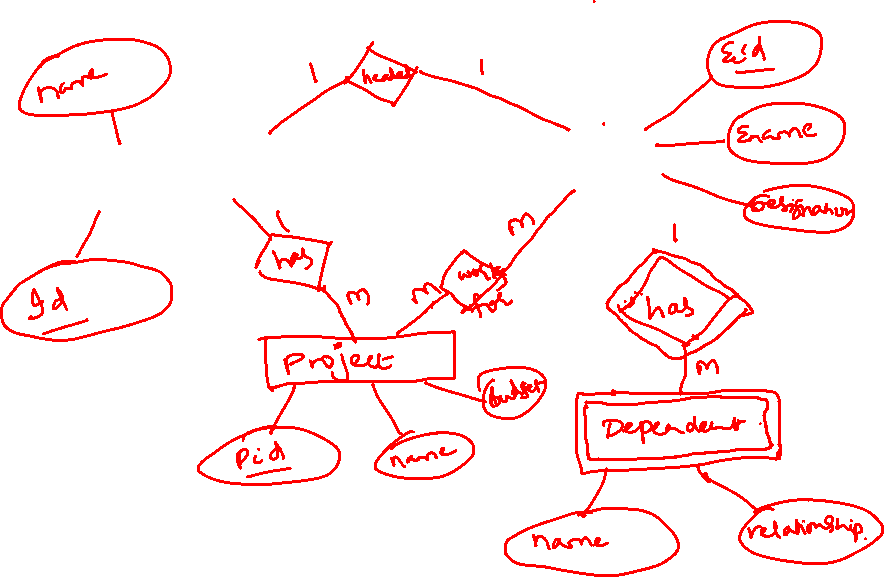 name
1
header
1
Eid
Ename
Designation
Id
1
has
M
M
works
for
M
1
has
M
Project
budget
Pid
name
Dependent
name
relationship.